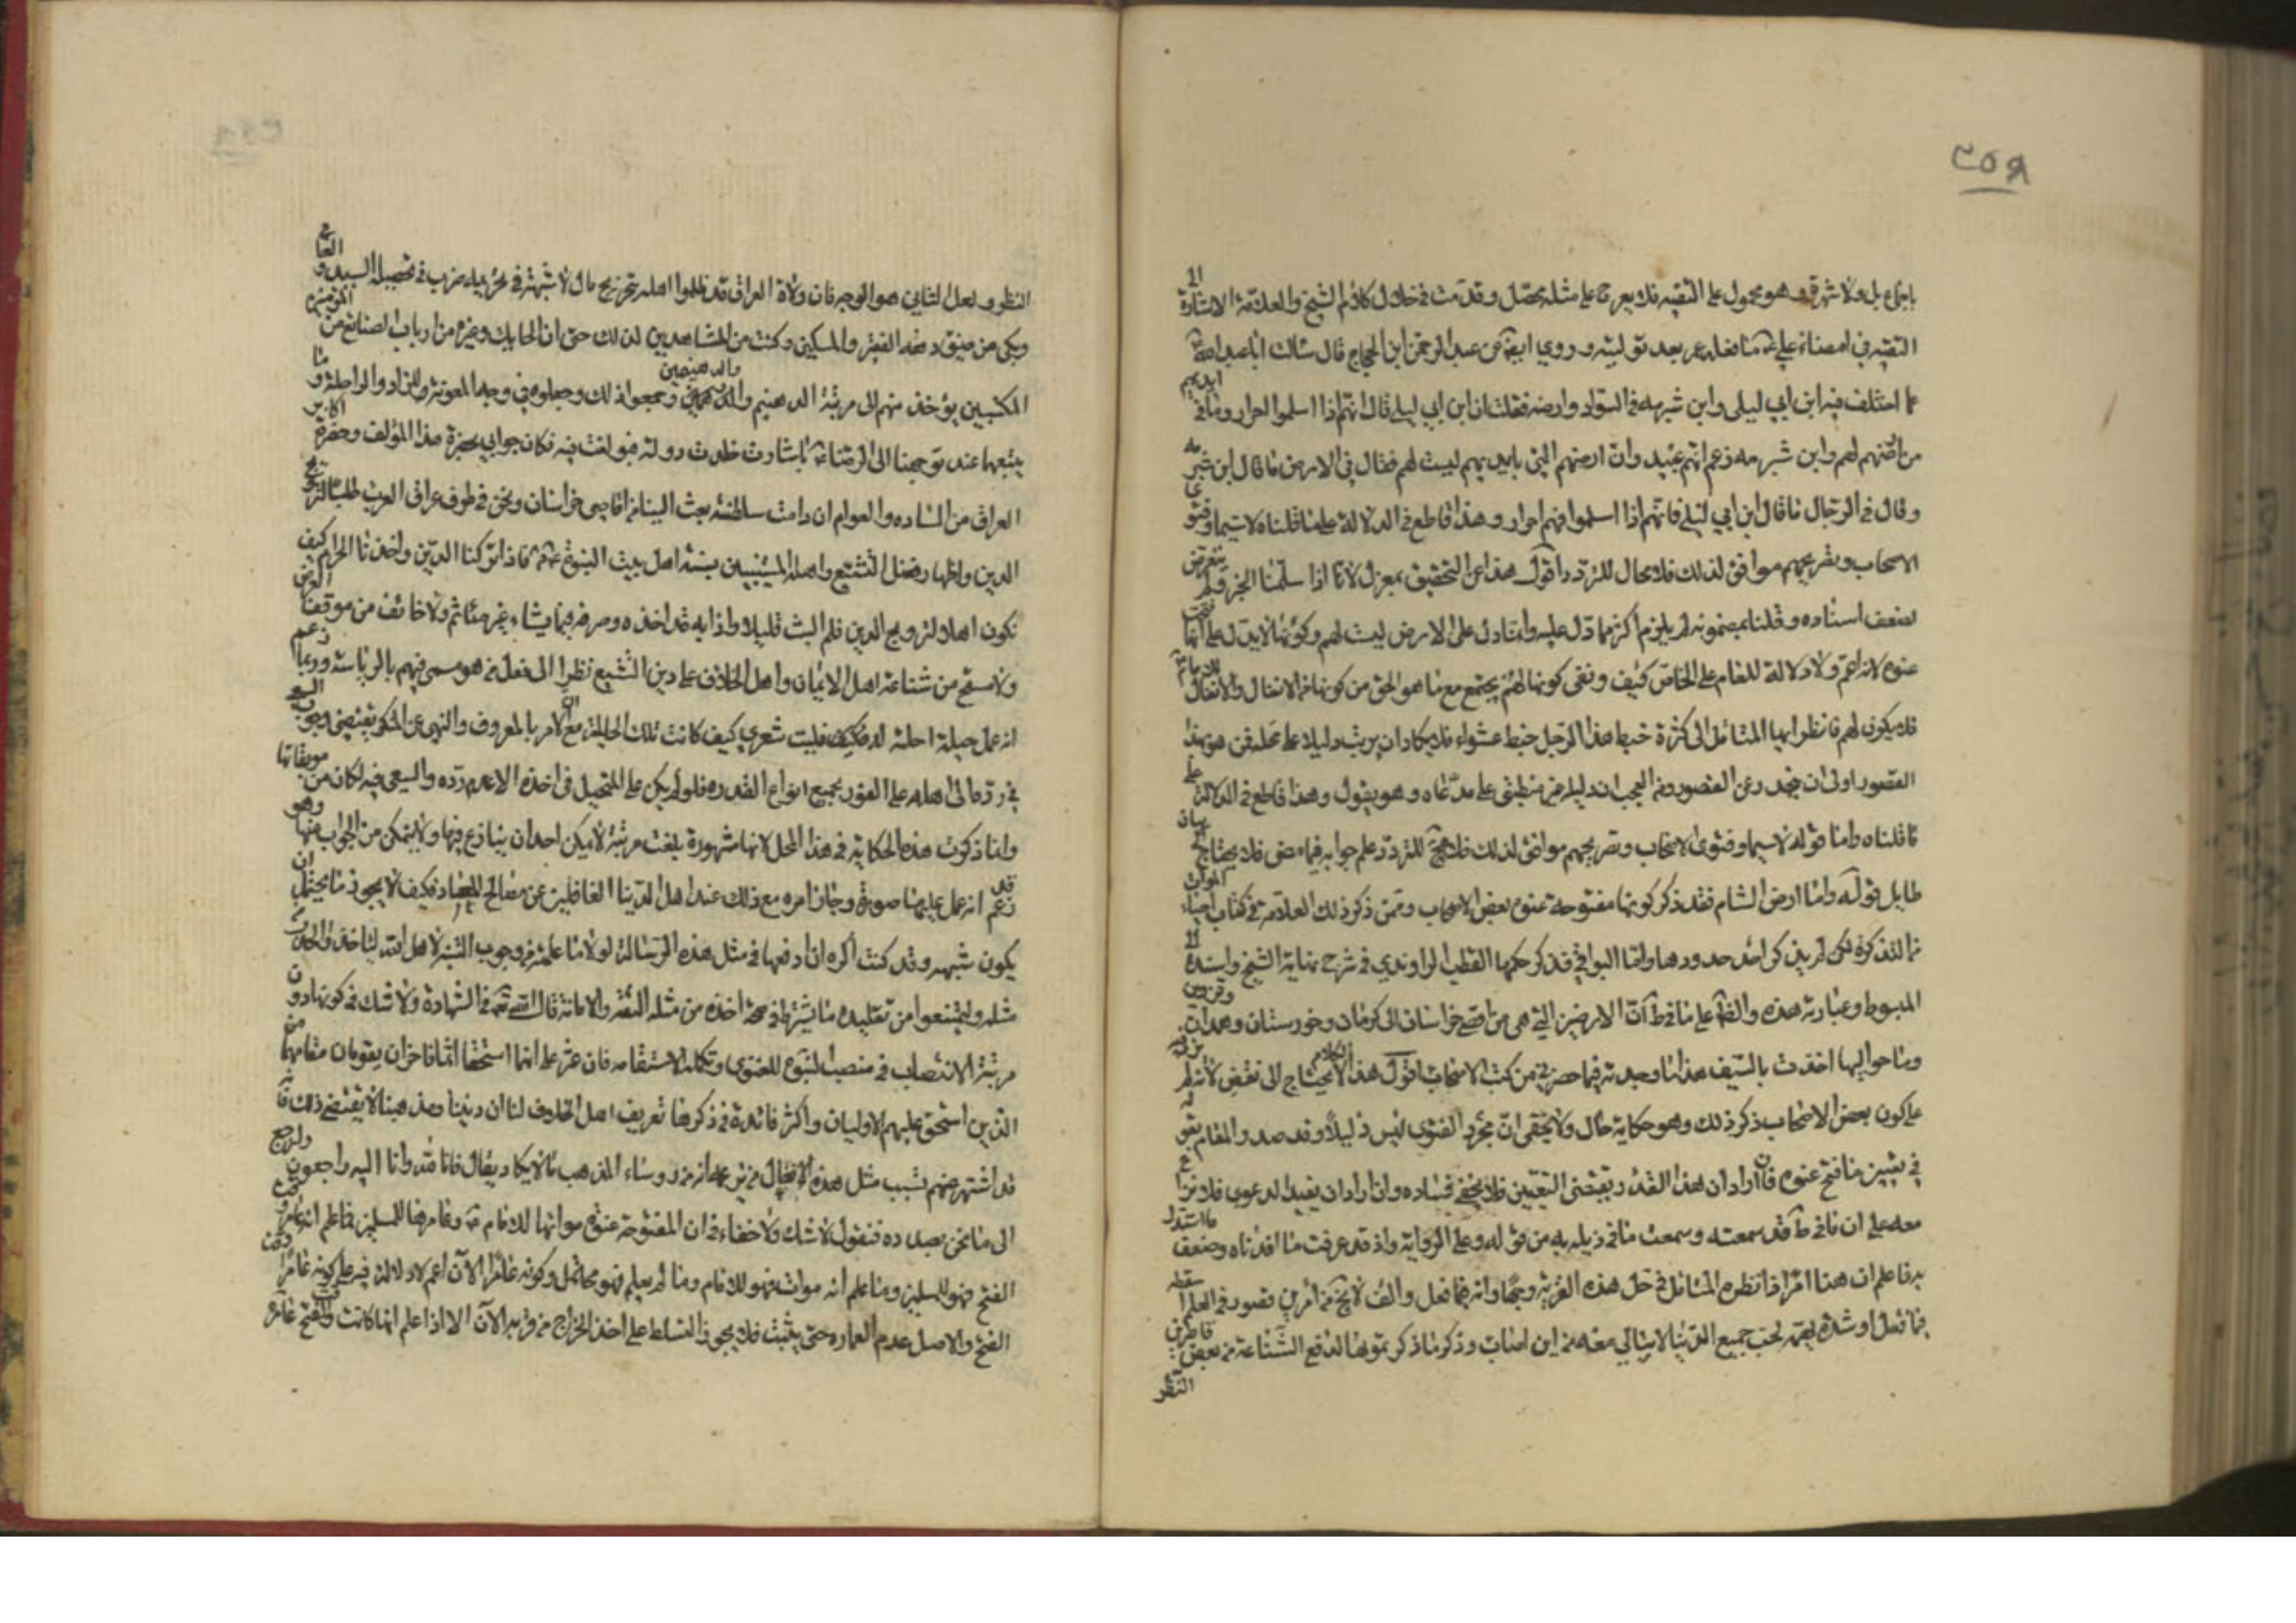 ٢٥٩
باجماع بل ولا شهرة وهو محمول على التقيه فلا يعرج على مثله محصل وقد مت في خلال كلام الشيخ والعلامة الاشارة الى
التقيه في امضاء علي ما فعله عمر بعد توليته وروي ايضا عن عبد الرحمن ابن الحجاج قال سالت ابا عبد الله
عما اختلف فيه ابن ابي ليلى وابن شبرمه في السواد وارضه فقلت ان ابن ابي ليلى قال انهم اذا اسلموا احرار وما في ايديهم
من ارضهم لهم وابن شبرمه زعم انهم عبيد وان ارضهم التي بايديهم ليست لهم فقال في الارض ما قال ابن شبرمه
وقال في الرجال ما قال ابن ابي ليلى فانهم اذا اسلموا فهم احرار وهذا قاطع في الدلالة على ما قلناه لا سيما وفتوى
الاصحاب وتصريحهم موافق لذلك فلا مجال للتردد اقول هذا عن التحقيق بمعزل لانا اذا سلمنا الخبر ولم يتعرض
لضعف اسناده وقلنا بمضمونه لم يلزم اكثر مما دل عليه وانما دل على الارض ليست لهم وكونها لا يدل على انها فتحت
عنوه لانه اعم ولا دلالة للعام على الخاص كيف ونفى كونها لهم يجتمع مع ما هو الحق من كونها من الانفال والانفال للامام
فلا يكون لهم فانظر ايها المتامل الى كثرة خبط هذا الرجل خبط عشواء فلا يكاد ان يرتب دليلا على محله فمن هو بهذا
القصور اولى ان يخدر عن القصور ومن العجب ان دليله غير منطبق على مدعاه وهو يقول وهذا قاطع في الدلالة على
ما قلناه واما قوله لا سيما وفتوى الاصحاب وتصريحهم موافق لذلك فلا مجال للتردد علم جوابه فيما مضى فلا يحتاج الى بيان
طايل قوله واما ارض الشام فقد ذكر كونها مفتوحة عنوه بعض الاصحاب وممن ذكر ذلك العلامه في كتاب احياء الموات
من التذكرة لكن لم يذكر احد حدودها واما البواقي فذكر حكمها القطب الراوندي في شرح نهاية الشيخ واسنده الى
المبسوط وعبارته هذه والظاهر على ما في ط ان الارضين التي هي من اقصى خراسان الى كرمان وخورستان وهمدان وقزوين
وما حواليها اخذت بالسيف هذا ما وجدته فيما حضرني من كتب الاصحاب اقول هذا الكلام لا يحتاج الى نقض لانه لم يزد
على كون بعض الاصحاب ذكر ذلك وهو حكاية حال ولا يخفى ان مجرد الفتوى ليس دليلا وقد صدر المقام بقوله
في تبيين ما فتح عنوه فان اراد ان هذا القدر يقتضي التعيين فلا يخفى فساده وان اراد ان يفيد الدعوى فلا نزاع
معه على ان ما في ط قد سمعته وسمعت ما في ذيله به من قوله وعلى الرواية واذ قد عرفت ما افدناه وضعف ما استدل
به فاعلم ان هنا امرا فانظره المتامل في حل هذه القرية وجها وانه فيما فعل والف لا يخ من امرين قصور في العلم اسقطه
فيما فعل او شدة بحب جميع الدنيا لا يبالي معه من اين اصاب وذكر ما ذكر تمويها لدفع الشناعة من بعض قاصرين
النظر
النظر ولعل الثاني هو الوجه فان ولاة العراق قد ظلموا اهله بتخريج مال لا شبهة في تحريمه ضرب في تحصيله السيد والعامي
وبكى من ضيق صدره الفقير والمسكين وكنت من المشاهدين لذلك حتى ان الحايك وغيره من ارباب الصنايع من المؤمنين
المكتسبين يؤخذ منهم الى مرتبة الدرهم والدرهمين وجمعوا ذلك وجعلوه في وجه المعونة والزاد والراحلة وما
يتبعها عند توجهنا الى الرضا باشارت خلدت دولته فبولغت فيه فكان جوابي بحضرة هذا المؤلف وحضرة اكابر
العراق من الساده والعوام ان دامت سلطنته بعث الينا من اقاصي خراسان ونحن في طرف عراق العرب طلبا لترويج
الدين واظهار فضل التشيع واهله المتسببين بسنة اهل بيت النبوة فاذا تركنا الدين واخذنا الحرام كيف
نكون اهلا لترويج الدين فلم البث قليلا واذا به قد اخذه وصرفه فيما يشاء غير متاثم ولا خائف من موقفنا الدين
ولا مستح من شناعة اهل الايمان واهل الخلاف على دين التشيع نظرا الى فعل من هو مسمى فيهم بالرياسة وربما زعم
انه عمل حيلة احلته له فليت شعري كيف كانت تلك الحيلة مع ان الامر بالمعروف والنهي عن المنكر يقتضي وجوب السعي
في رد ما الى اهله على الفور بجميع انواع القدره فلو لم يكن على المتحيل في اخذه الا عدم رده والسعي فيه لكان من موبقاتها
وانما ذكرت هذه الحكاية في هذا المحل لانها مشهورة بلغت مرتبة لا يمكن احد ان ينازع فيها ولا يتمكن من الجواب عنها وهو
قد زعم انه عمل عليها صورة وجاز امره مع ذلك عند اهل الدنيا الغافلين عن مصالح المعاد فكيف لا يجوز ما يحتمل ان
يكون شبهه وقد كنت اكره ان ادفعها في مثل هذه الرسالة لولا ما علمته من وجوب التنبيه لاهل الله
مثله وليمتنعوا من تقليده ما يشترط في صحة اخذه من مثله الثقة والامانة قال الله تعالى في الشهادة ولا شك في كونها دون
مرتبة الانتصاب في منصب النبوة للفتوى وتكلمة الاستقامه فان عثر على انهما استحقا اثما فاخران يقومان مقامهما من
الذين استحق عليهم الاوليان واكثر فائدة في ذكرها تعريف اهل الخلاف لنا ان ديننا ومذهبنا لا يقتضي ذلك فا
قد اشتهر عنهم بسبب مثل هذه الافعال من رؤساء المذهب ما لا يكاد يقال فانا لله وانا اليه راجعون ولنرجع
الى ما نحن بصدده فنقول لا شك ولا خفاء في ان المفتوحة عنوه مواتها للامام وعامرها للمسلمين فما علم انه عامر وقت
الفتح فهو للمسلمين وما علم انه موات فهو للامام وما لم يعلم فهو محتمل وكونه عامرا الان اعم لا دلالة فيه على كونه عامرا وقت
الفتح والاصل عدم العماره حتى يثبت فلا يجوز التسلط على اخذ الخراج من قرية الان الا اذا علم انها كانت وقت الفتح عامره